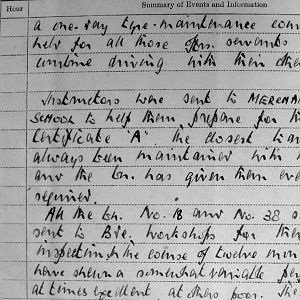 Hour Summary of Events and Information
a one-day tyre-maintenance cou
help for all those Offrs. servants
combine driving with their othe
Instructors were sent to MERCHA
SCHOOL to help them prepare for th
Certificate "A". The closest liai
always been maintained with
and the bn. has given them eve
required.
All the bn. No. 18 and No. 38 s
sent to Bde. workshops for thei
inspection. In the course of twelve mon
have shown a somewhat variable per
at times excellent, at others poor. The